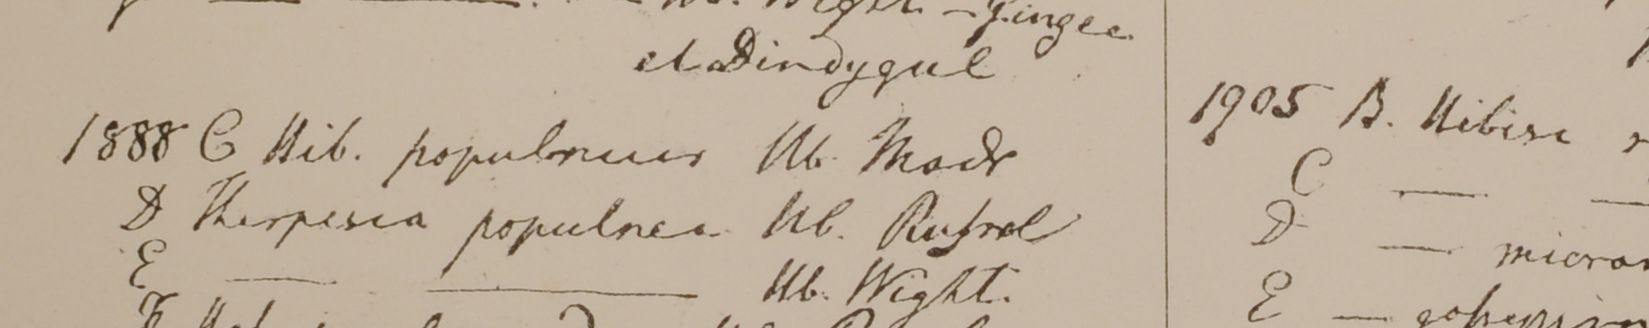 Wight — Gingee
et Dindygul
1888 C Hib. populneus Hb. Madr
D Thespesia populnea Hb. Russel
E — — Hb. Wight.
1905 B. Hibisc
C — —
D — micran
E —